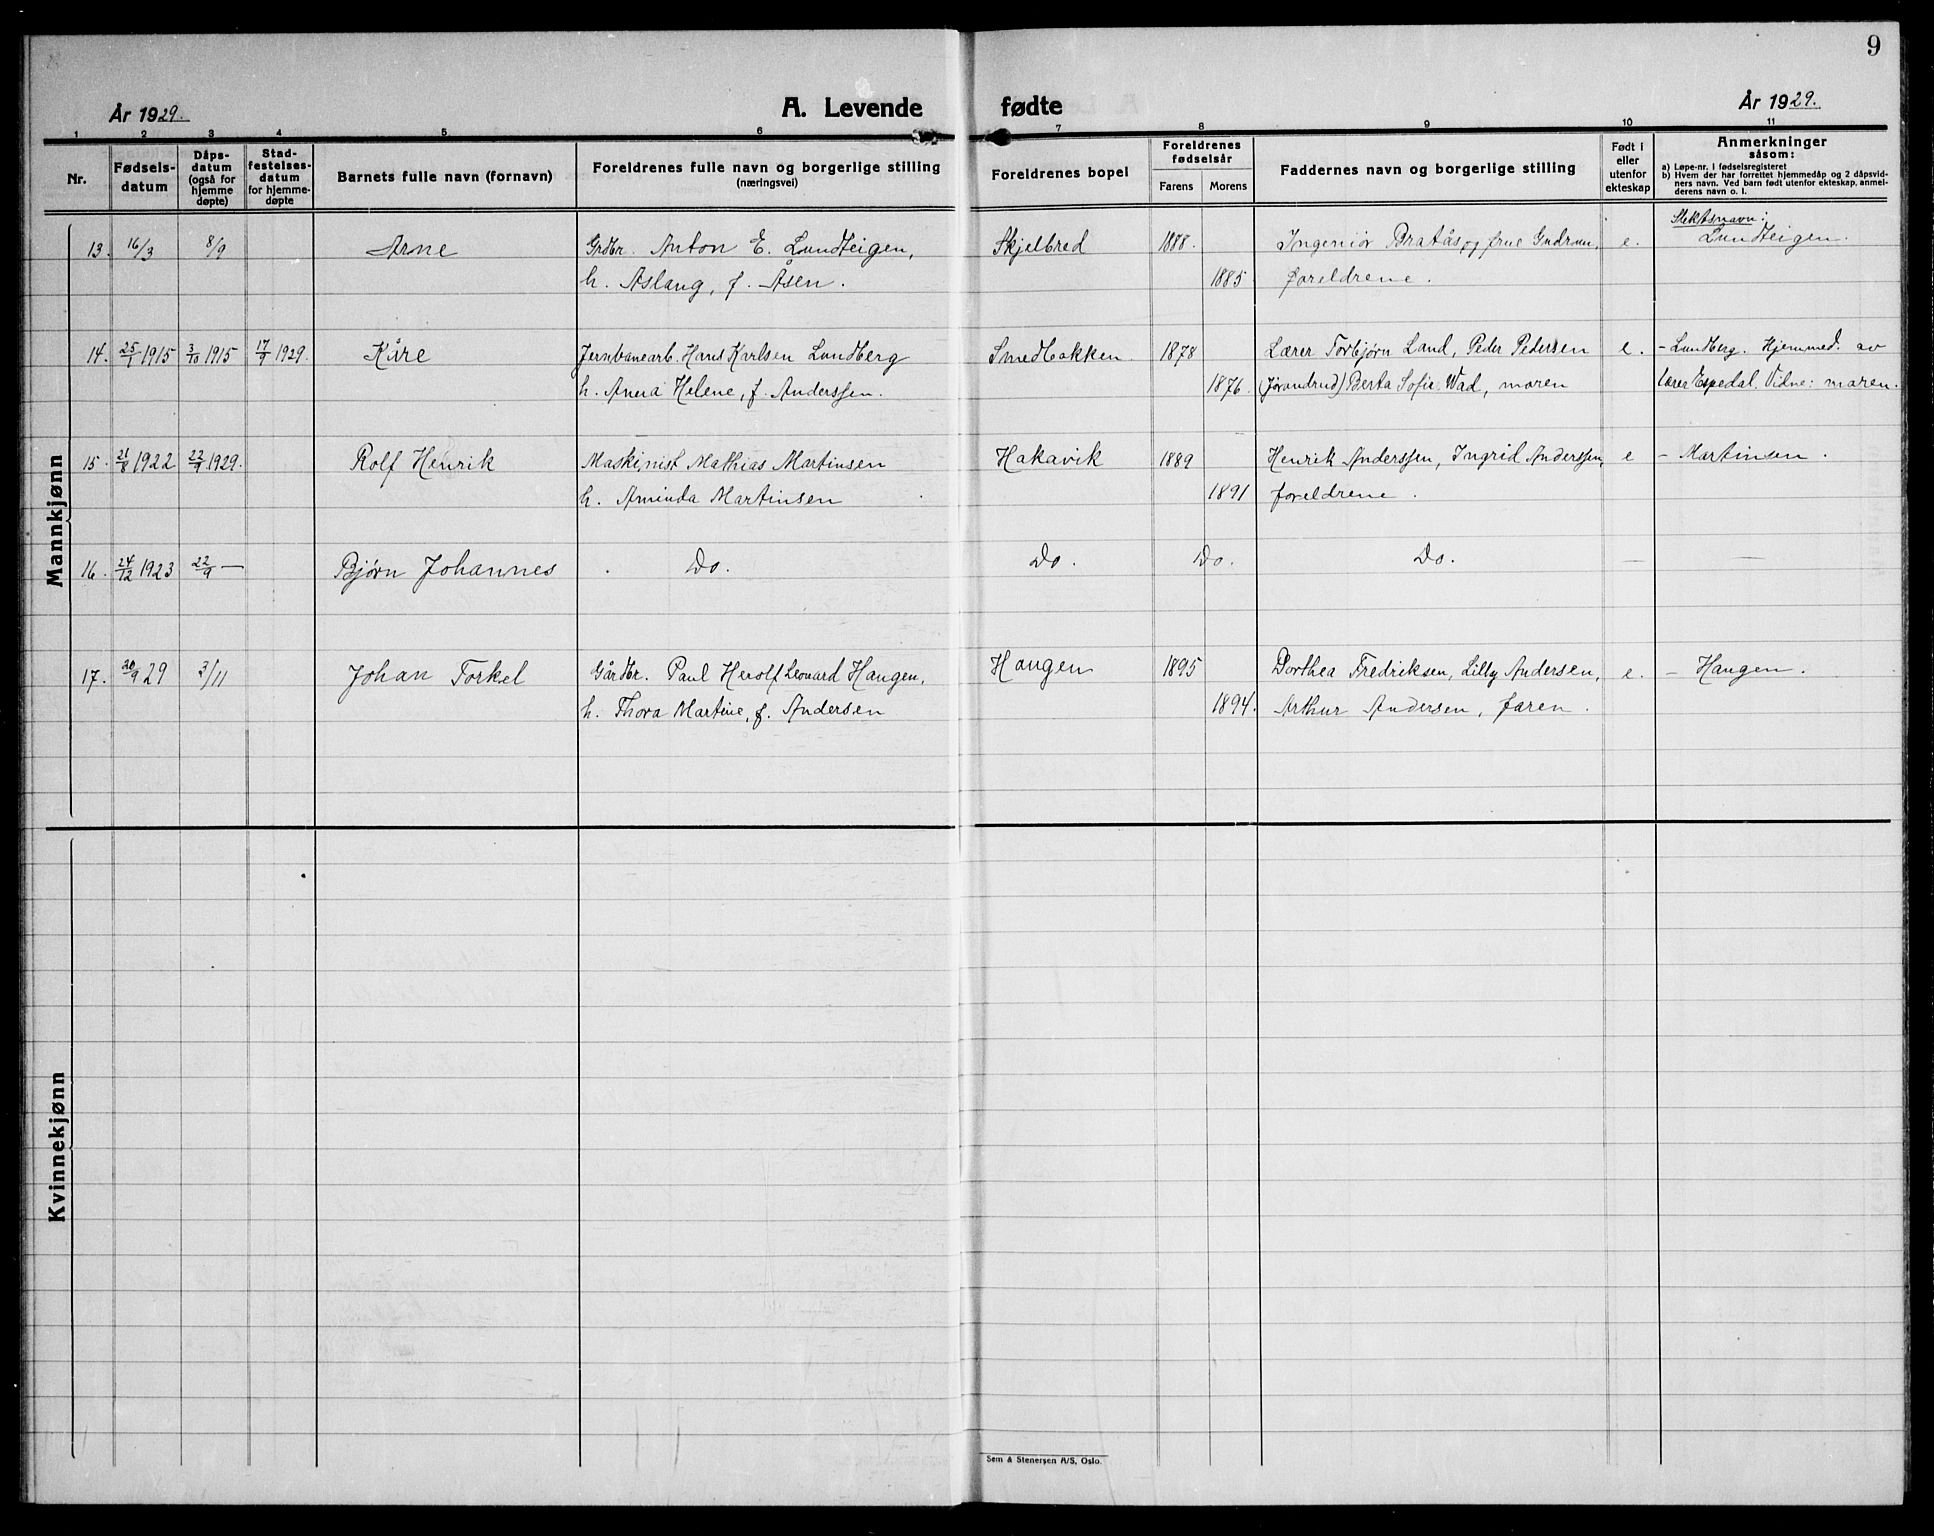 9
År 1929. A. Levende fødte År 1929.
1 2 3 4 5 6 7 8 9 10 11
Nr.
Fødsels-
datum
Dåps-
datum
(også for
hjemme
døpte)
Stad-
festelses-
datum
for hjemme-
døpte
Barnets fulle navn (fornavn)
Foreldrenes fulle navn og borgerlige stilling
(næringsvei)
Foreldrenes bopel
Foreldrenes
fødselsår
Farens Morens
Faddernes navn og borgerlige stilling
Født i
eller
utenfor
ekteskap
Anmerkninger
såsom:
a) Løpe-nr. i fødselsregisteret
b) Hvem der har forrettet hjemmedåp og 2 dåpsvid-
ners navn. Ved barn født utenfor ekteskap, anmel-
derens navn o. l.
Mannkjønn
Slektsnavn:
13. 16/3 8/9 Arne Grdbr. Anton E. Lundteigen, Skjelbred 1888. Ingeniør Bratås og frue Gudrun, e. Lundteigen.
h. Aslaug, f. Åsen. 1885 foreldrene.
14. 25/1 1915 3/10 1915 17/9 1929. Kåre Jernbanearb. Hans Karlsen Lundberg Smedbakken. 1878 Lærer Torbjørn Land, Peder Pedersen e. - Lundberg. Hjemmed. av
h. Anna Helene, f. Anderssen. 1876. (Jørandrud) Berta Sofie Wad, moren lærer Espedal. Vidne: moren.
15. 21/8 1922 22/9 1929. Rolf Henrik Maskinist Mathias Martinsen Hakavik 1889 Henrik Anderssen, Ingrid Anderssen, e - Martinsen.
h. Aminda Martinsen 1891 foreldrene.
16. 24/12 1923 22/9 — Bjørn Johannes Do. Do. Do. Do. — —
17. 20/9 29 3/11 Johan Torkel Gårdbr. Paul Herolf Leonard Haugen, Haugen 1895 Dorthea Fredriksen, Lilly Andersen, e. - Haugen.
h. Thora Martine, f. Andersen 1894. Arthur Andersen, faren.
Kvinnekjønn
Sem & Stenersen A/S, Oslo.